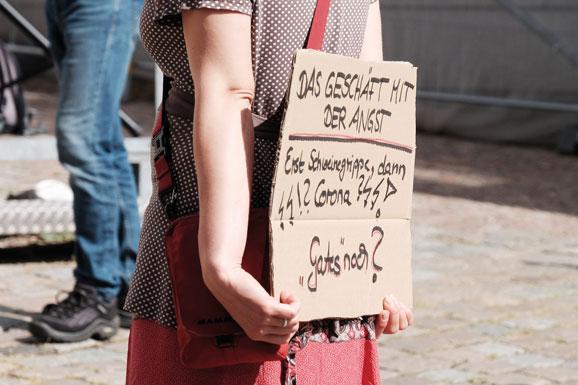 DAS GESCHÄFT MIT
DER ANGST
Erst Schweinegrippe, dann
Corona
"Gates" noch?
MAMMUT